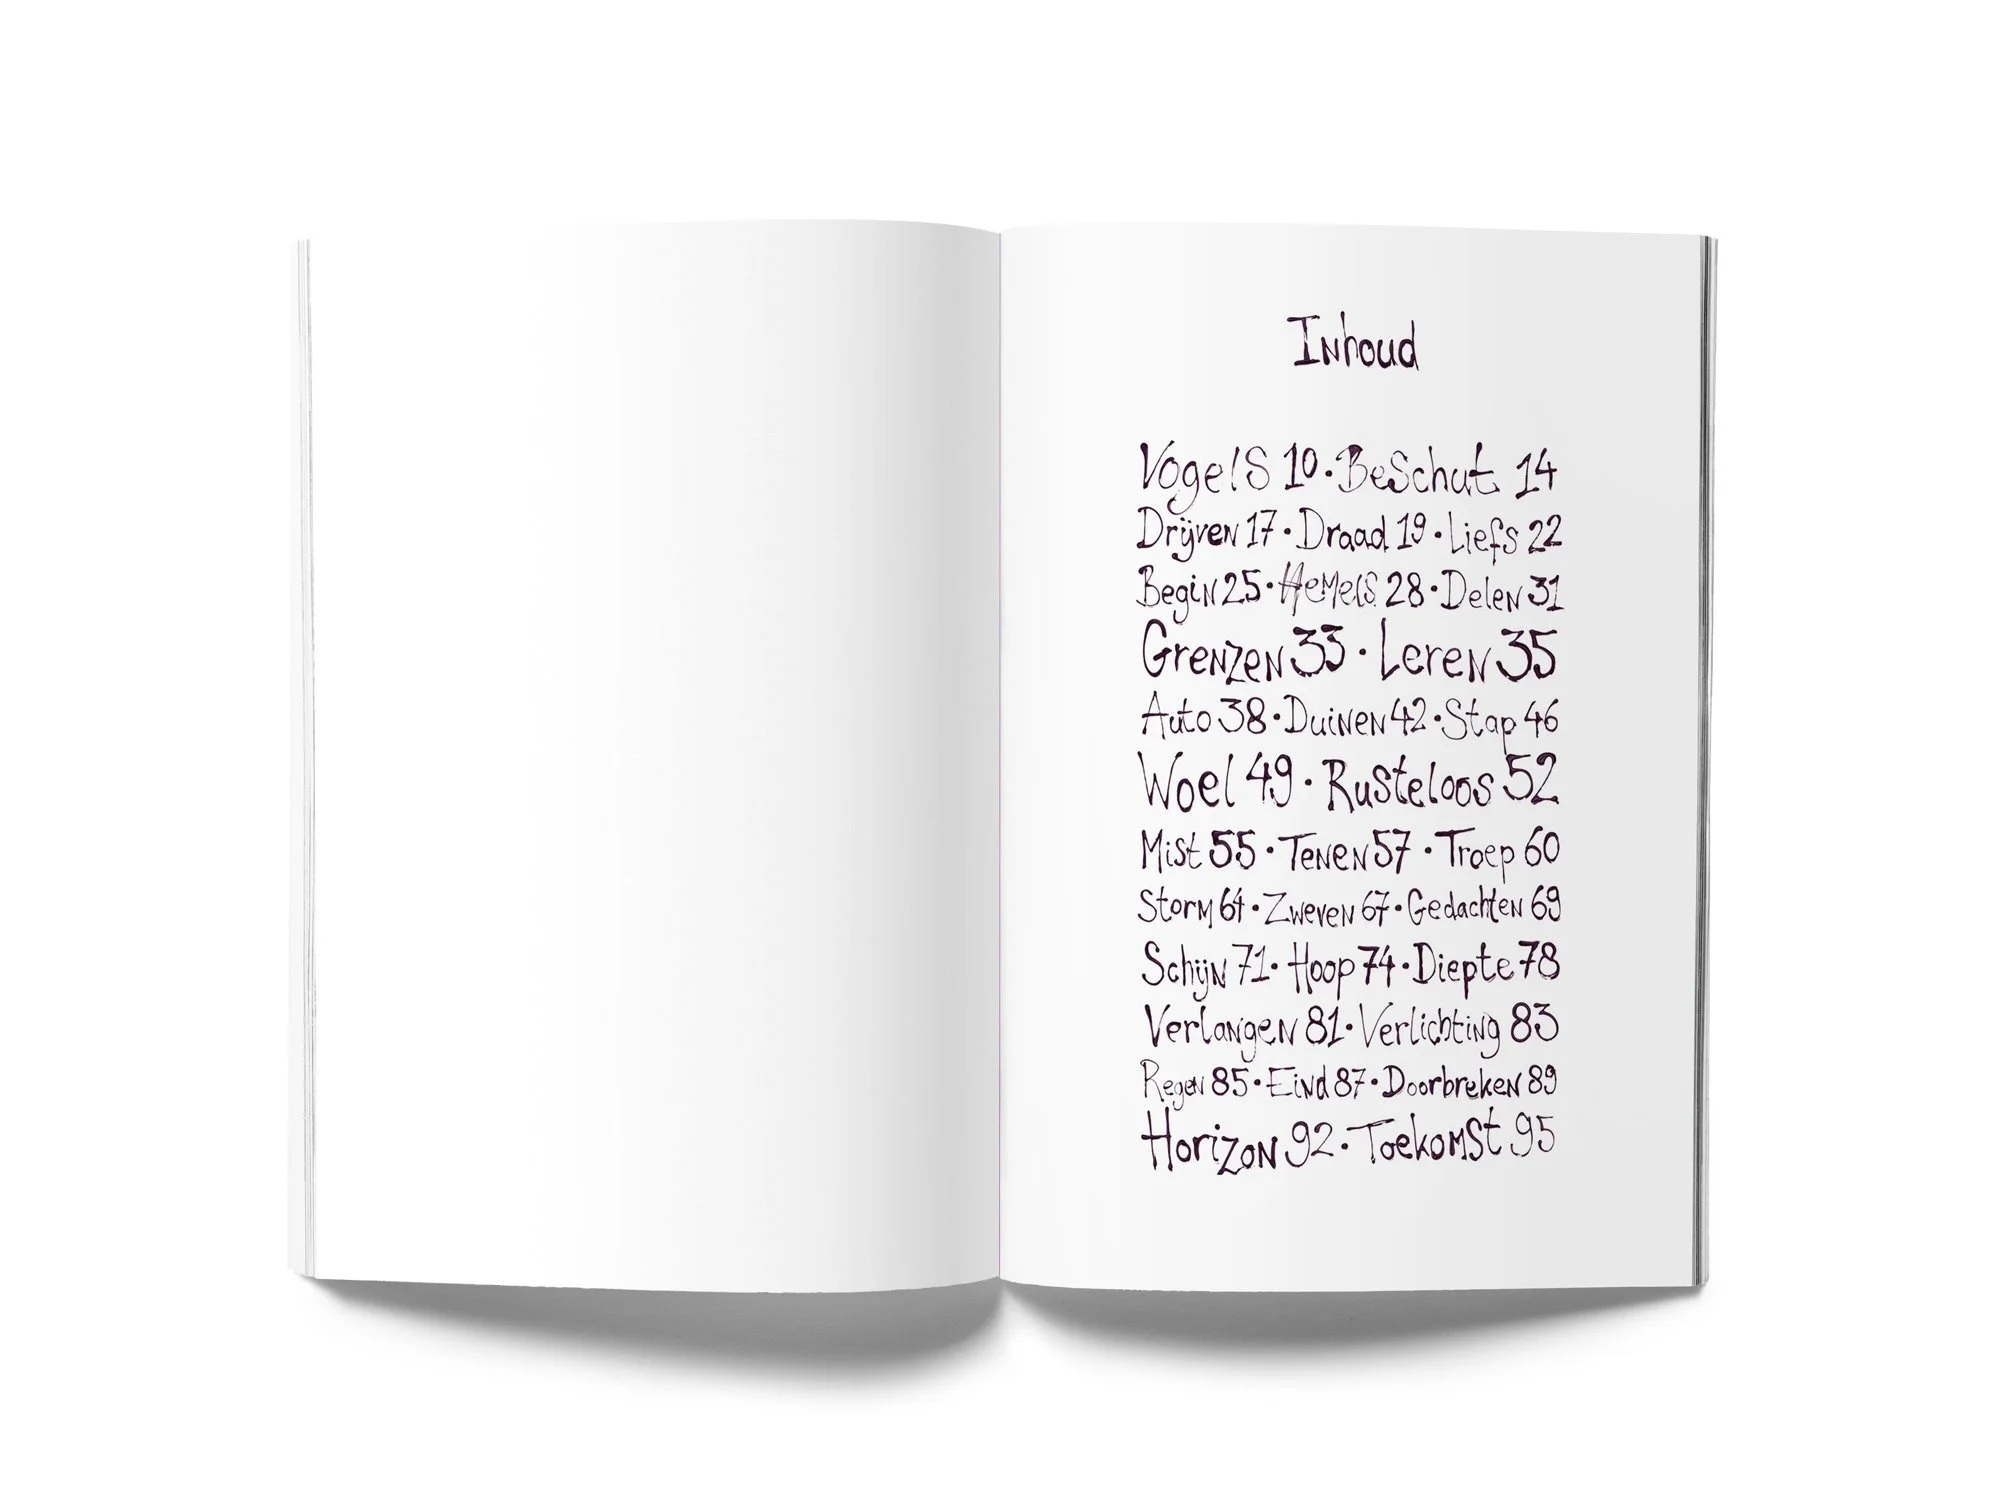 Inhoud
Vogels 10 · Beschut 14
Drijven 17 · Draad 19 · Liefs 22
Begin 25 · Hemels 28 · Delen 31
Grenzen 33 · Leren 35
Auto 38 · Duinen 42 · Stap 46
Woel 49 · Rusteloos 52
Mist 55 · Tenen 57 · Troep 60
Storm 64 · Zweven 67 · Gedachten 69
Schijn 71 · Hoop 74 · Diepte 78
Verlangen 81 · Verlichting 83
Regen 85 · Eind 87 · Doorbreken 89
Horizon 92 · Toekomst 95